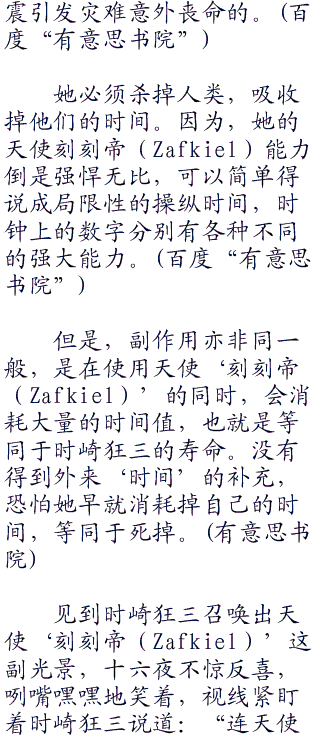 震引发灾难意外丧命的。(百
度“有意思书院”)
她必须杀掉人类，吸收
掉他们的时间。因为，她的
天使刻刻帝（Zafkiel）能力
倒是强悍无比，可以简单得
说成局限性的操纵时间，时
钟上的数字分别有各种不同
的强大能力。(百度“有意思
书院”)
但是，副作用亦非同一
般，是在使用天使‘刻刻帝
（Zafkiel）’的同时，会消
耗大量的时间值，也就是等
同于时崎狂三的寿命。没有
得到外来‘时间’的补充，
恐怕她早就消耗掉自己的时
间，等同于死掉。(有意思书
院)
见到时崎狂三召唤出天
使‘刻刻帝（Zafkiel）’这
副光景，十六夜不惊反喜，
咧嘴嘿嘿地笑着，视线紧盯
着时崎狂三说道：“连天使